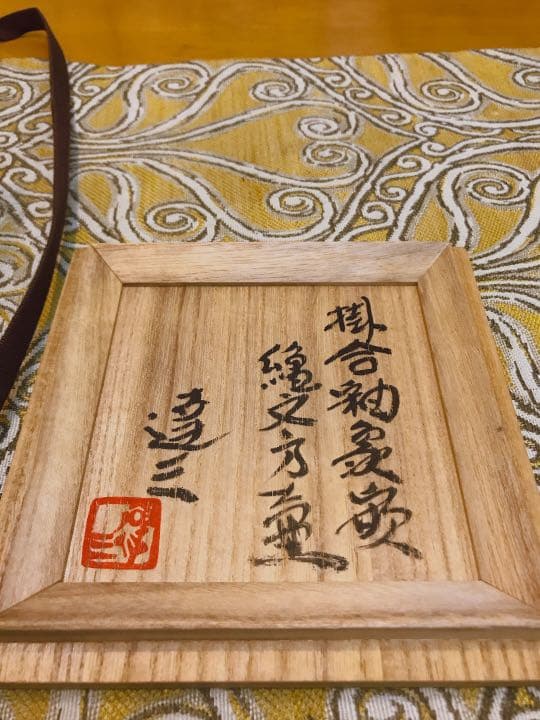 掛合釉象嵌
縄文方壷
達三